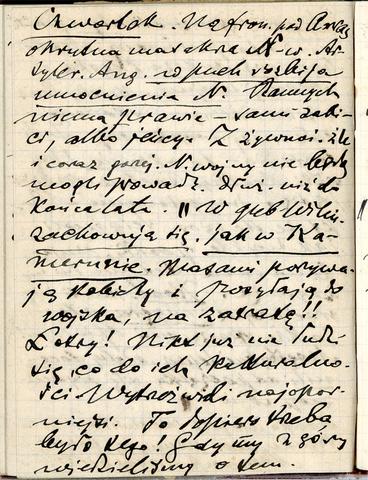 Czwartek. Na fron. pod Arras
okrutna masakra N. w. Ar-
tyler. Ang. w puch rozbija
umocnienia N. Rannych
niema prawie – sami zabi-
ci, albo jeńcy. Z żywnoś. źle
i coraz gorzej. N. wojny nie będą
mogli prowadz. dłuż. niż do
końca lata. || W gub. Wileń.
zachowują się, jak w Ka-
merunie. Masami porywa-
ją kobiety i posyłają do
wojska, na zatratę!!
Łotry! Nikt już nie łudzi
się co do ich kulturalno-
ści. Wytrzeźwieli najopor-
niejsi. To dopiero trzeba
było tego! Gdyby z góry
wiedzieliśmy o tem.